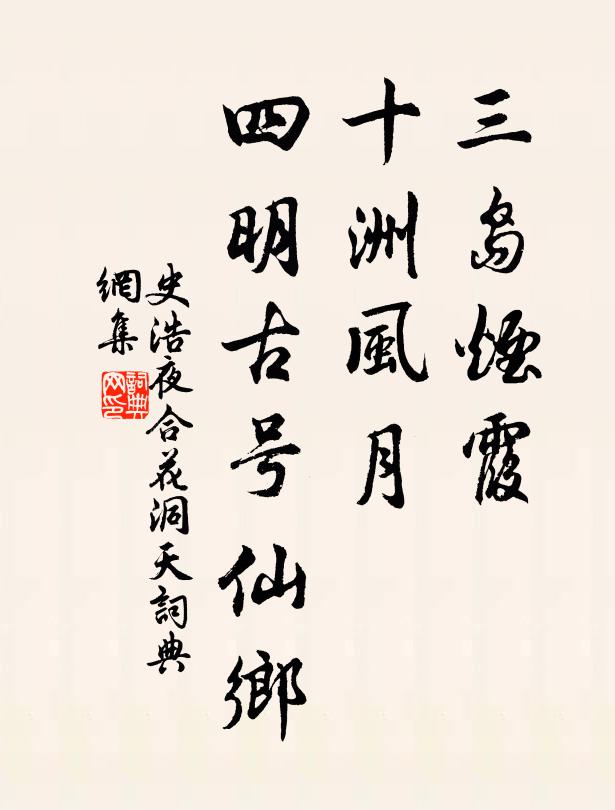 三岛煙霞
十洲風月
四明古号仙鄉
史浩夜合花洞天詞典
網集
詞典网印